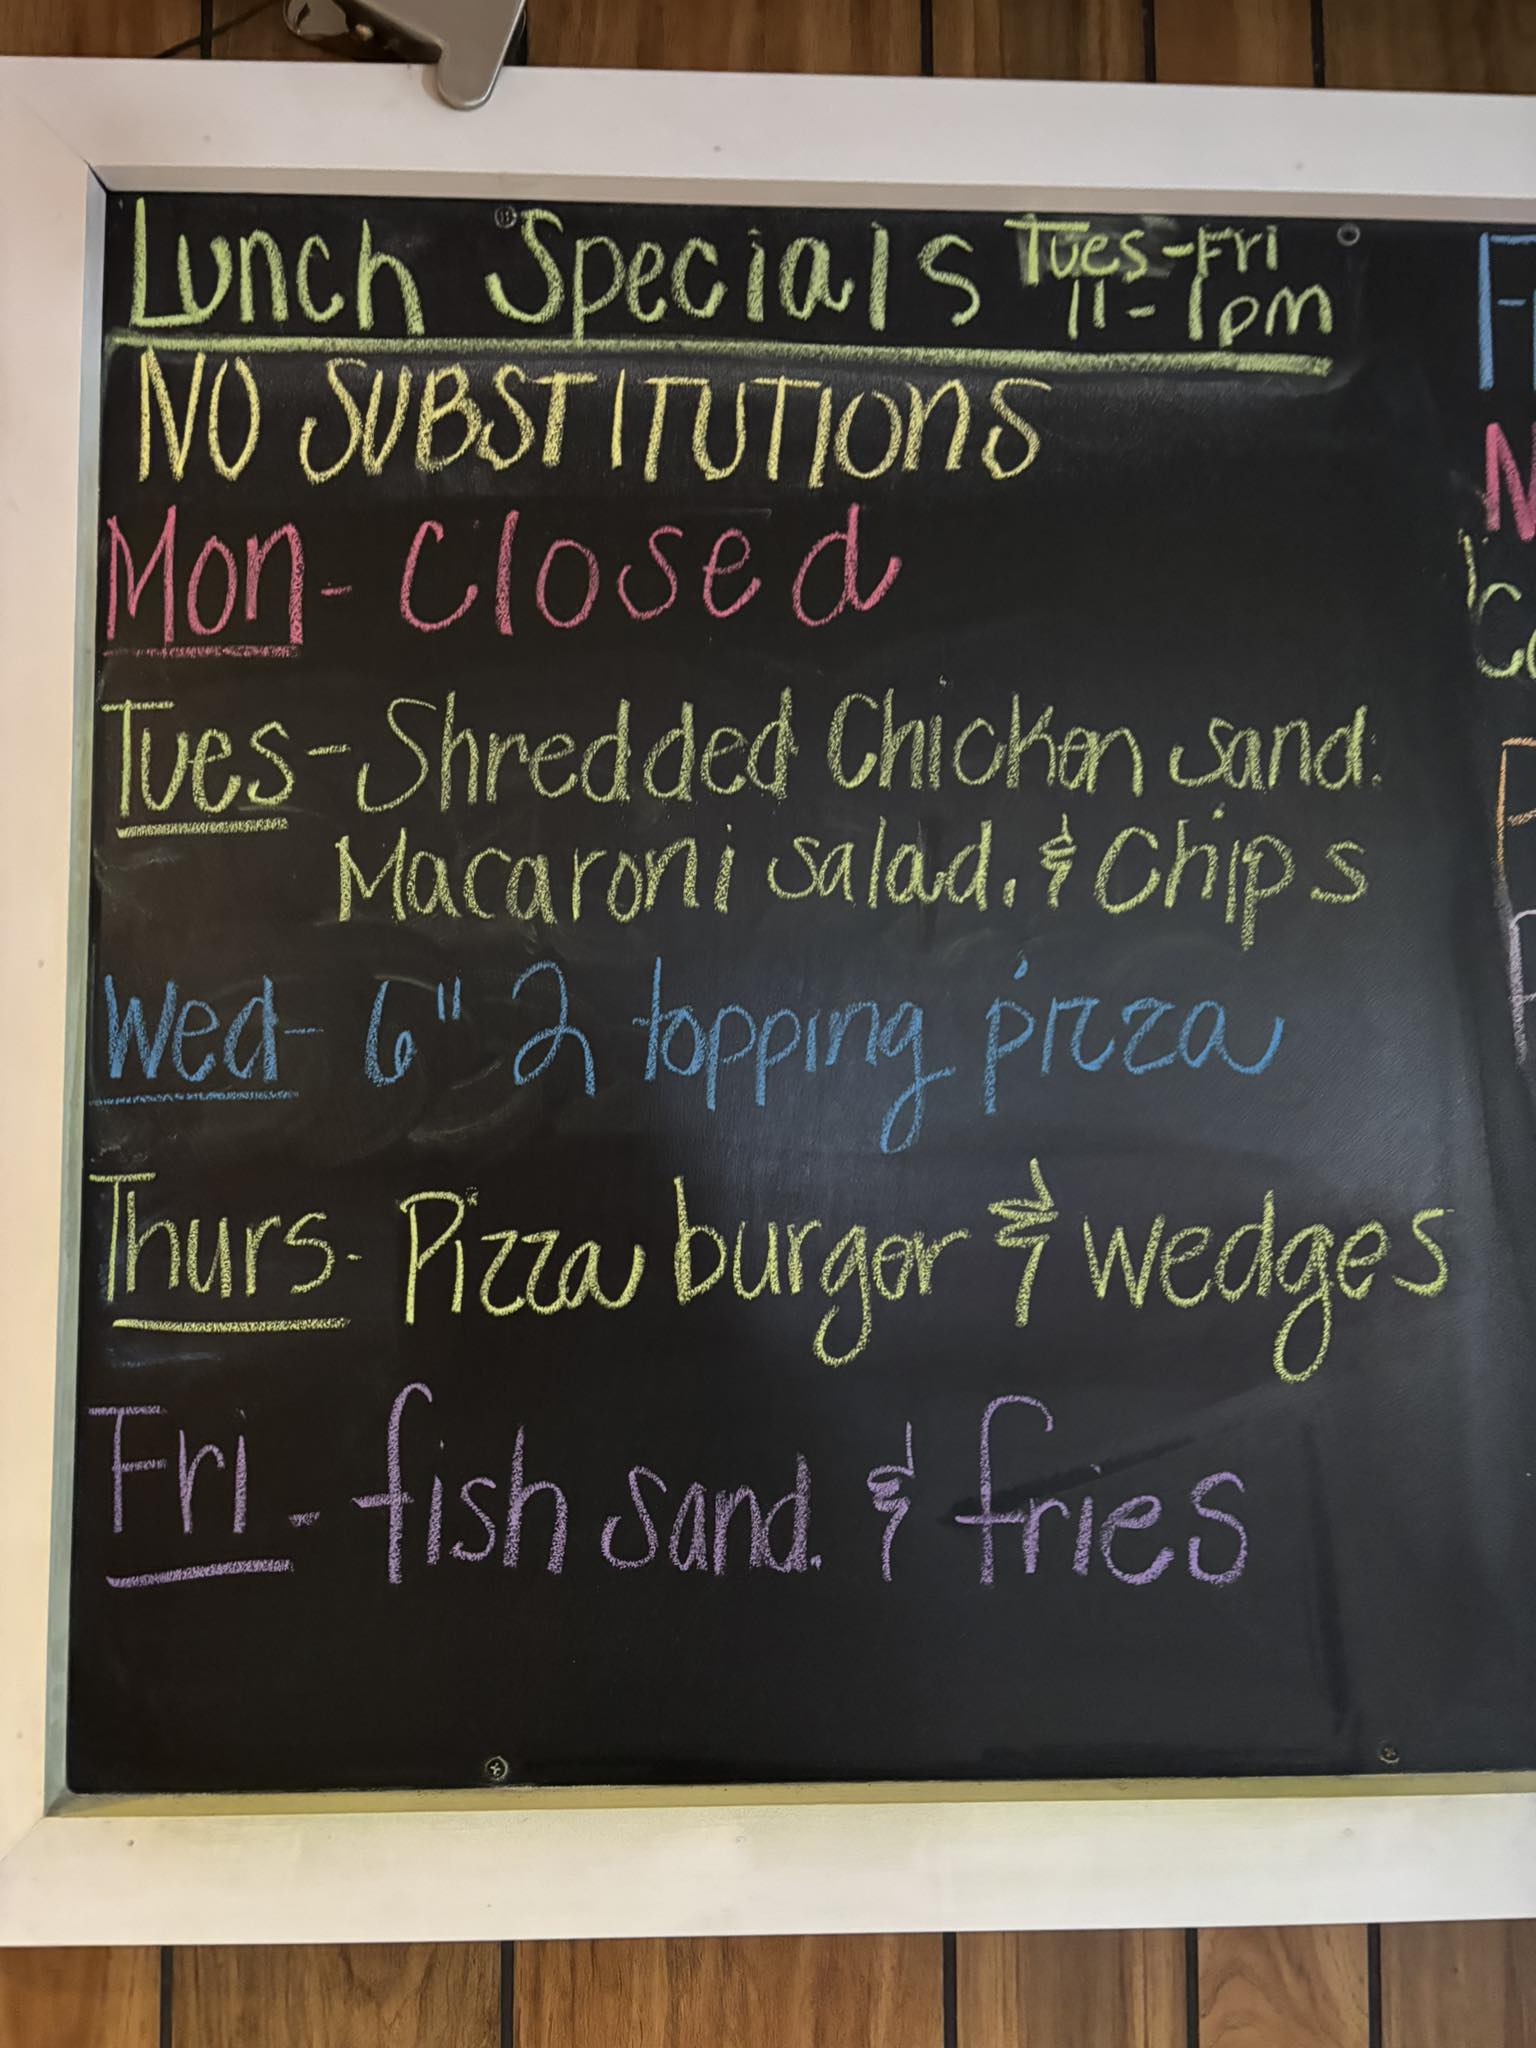 Lunch Specials Tues-Fri
11-1pm
NO SUBSTITUTIONS
Mon- Closed
Tues- Shredded Chicken sand.
Macaroni salad. & Chips
Wed- 6" 2 topping pizza
Thurs- Pizza burger & wedges
Fri- fish sand. & fries